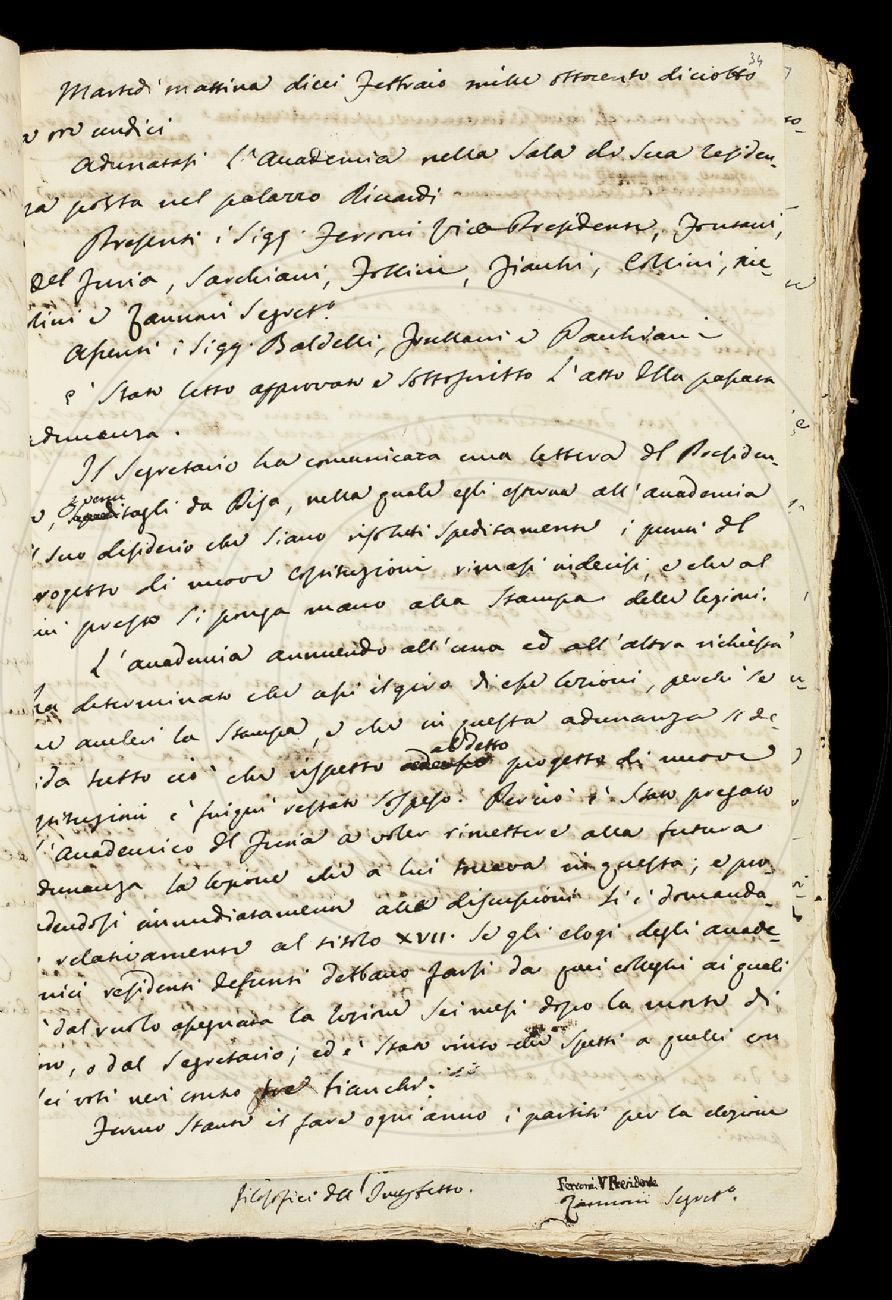 34
Martedì mattina dieci Febbraio mille ottocento diciotto
a ore undici
Adunatasi l'Accademia nella Sala di Sua residen-
za posta nel palazzo Riccardi
Presenti i Sigg. Ferroni Vice Presidente, Fontani,
del Furia, Sarchiani, Follini, Zianchi, Collini, Nic-
olini e Zannoni Segret.o
Assenti i Sigg. Baldelli, Frullani e
è stato letto approvato e sottoscritto l'atto della passata
adunanza.
Il Segretario ha comunicata una lettera del Presiden-
te, scrittagli da Pisa, nella quale egli esterna all'accademia
il suo desiderio che siano risoluti speditamente i punti del
progetto di nuove costituzioni rimasi indecisi, e che al
più presto si ponga mano alla stampa delle lezioni.
L'accademia annuendo all'una ed all'altra richiesta
ha determinato che assi il giro di esse lezioni, perchè se
ne acceleri la stampa, e che in questa adunanza si de-
cida tutto ciò che rispetto al detto progetto di nuove
costituzioni è fin qui restato sospeso. Perciò è stato pregato
l'Accademico del Furia a voler rimettere alla futura
adunanza la lezione che a lui toccava in questa; e pro-
cedendosi immediatamente alle discussioni si è domanda-
to relativamente al titolo XVII. Se gli elogi degli accade-
mici residenti defunti debbano farsi da quei colleghi ai quali
è dal ruolo assegnata la lezione sei mesi dopo la morte di
o dal Segretario; ed è stato vinto che spetti a quelli con
sei voti neri contro tre bianchi.
Fermo stante il fare ogni anno i partiti per la elezione
filosofici dell'
Ferroni V Presidente
Zannoni Segret.o